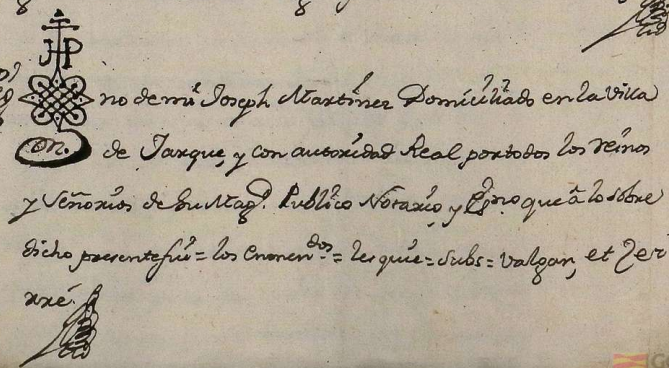 no de mi Joseph Martinez Domiciliado en la Villa
de Jarque, y con autoridad Real por todos los reinos
y Señorios de Su Magd. Publico Notario, y Esno que â lo sobre
dicho presente fui = los enmendos = les que = Subs = valgan, et Zer
rré.